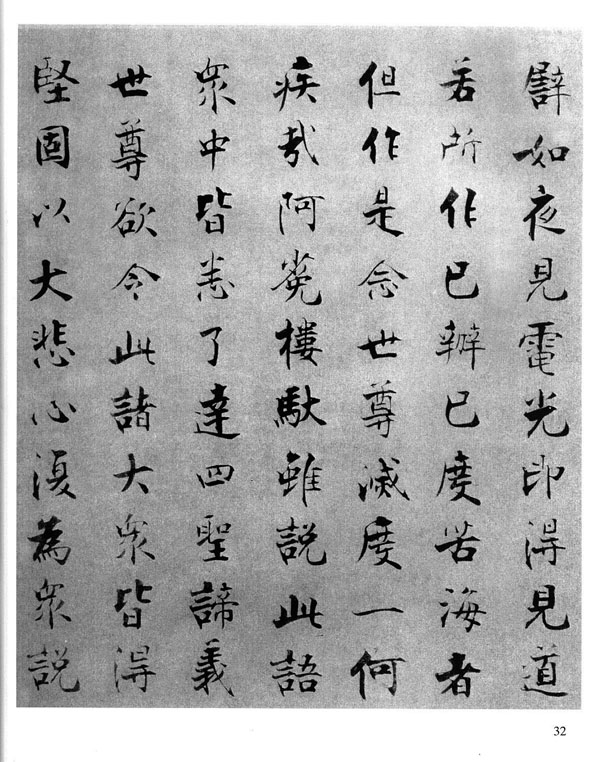 譬如夜見電光即得見道
若所作已辦已度苦海者
但作是念世尊滅度一何
疾哉阿㝹樓馱雖說此語
眾中皆悉了達四聖諦義
世尊欲令此諸大眾皆得
堅固以大悲心復為眾說
32